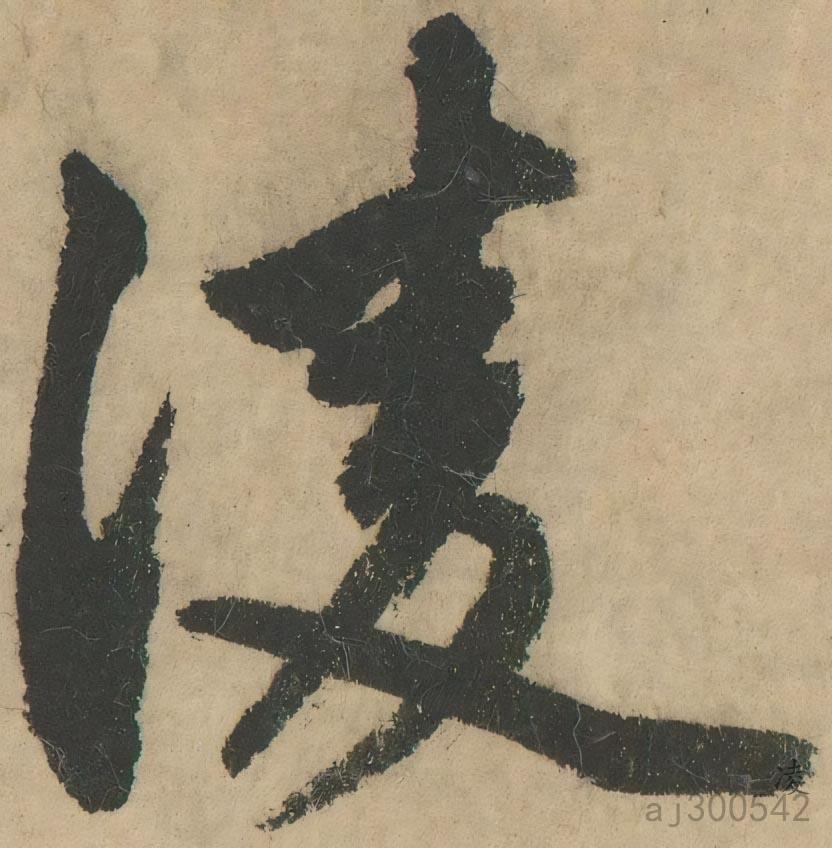 凌
凌
aj300542